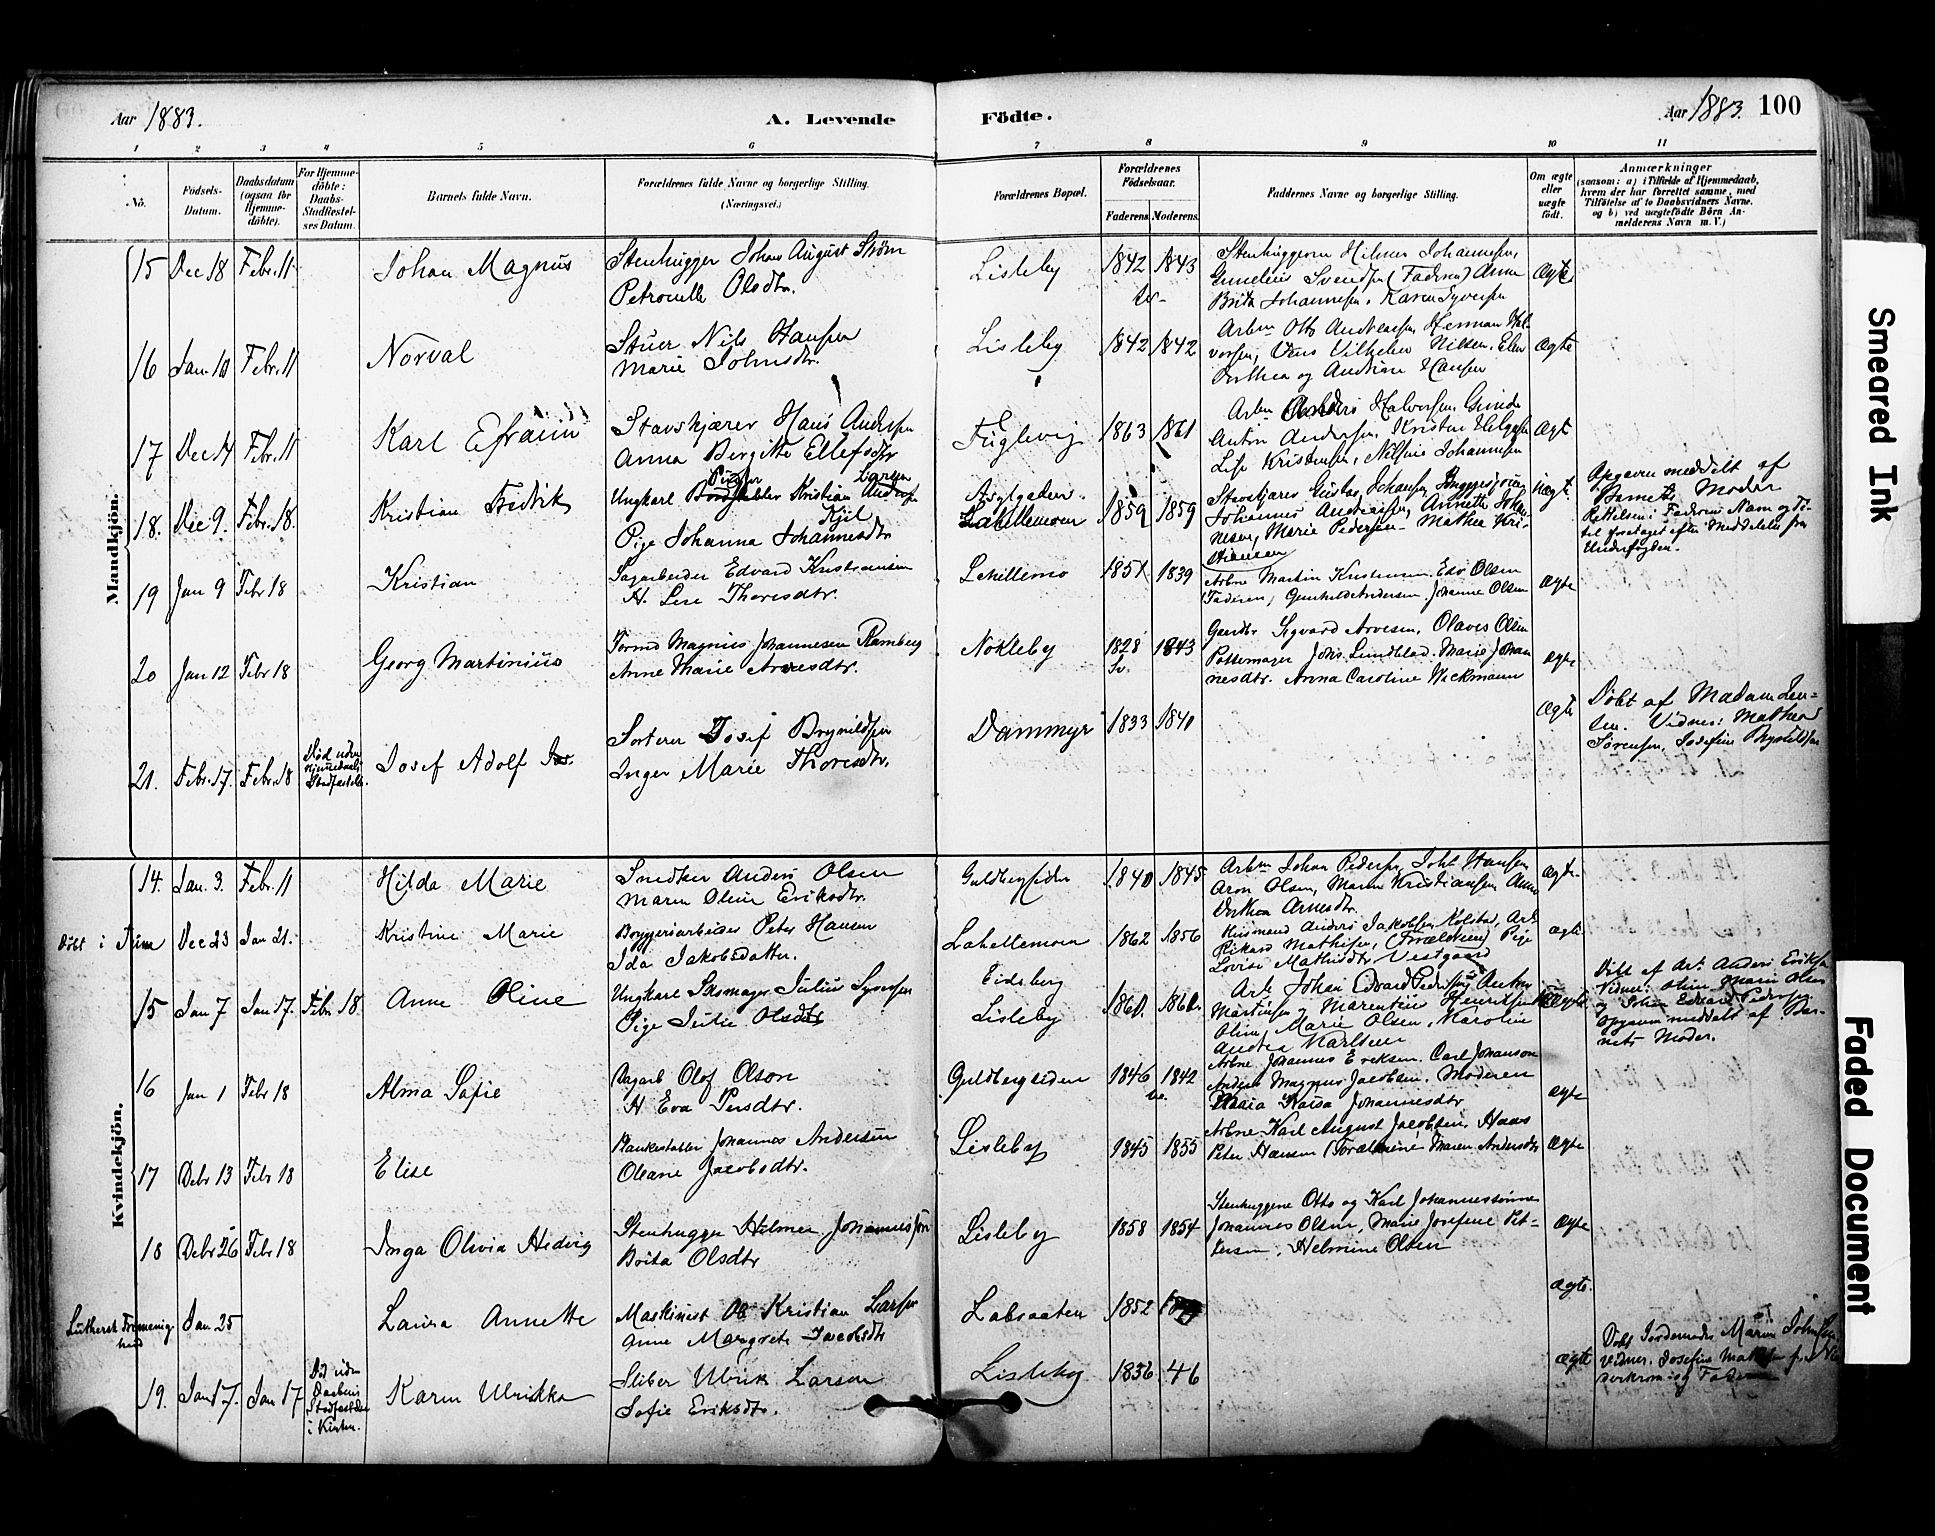 Aar 1883.
A. Levende Födte.
Aar 1883. 100
1 2 3 4 5 6 7 8 9 10 11
No.
Födsels-Datum.
Daabsdatum (ogsaa for Hjemme-döbte).
For Hjemme-döbte: Daabs-Stadfæstel-ses Datum.
Barnets fulde Navn.
Forældrenes fulde Navne og borgerlige Stilling.
(Næringsvei.)
Forældrenes Bopæl.
Forældrenes Födselsaar.
Faderens Moderens
Faddernes Navne og borgerlige Stilling.
Om ægte eller uægte födt.
Anmærkninger
(saasom: a) i Tilfælde af Hjemmedaab,
hvem der har forrettet samme, med
Tilföielse af to Daabsvidners Navne.
og b) ved uægtefödte Börn An-
melderens Navn m. V.)
Mandkjön.
15 Dec 18 Febr. 11 Johan Magnus
Stenhugger Johan August Strøm
Petronelle Olsdtr.
Lisleby 1842 1843
Stenhuggerne Hilmer Johannesen,
Gunelius Svendsen (Faderen) Anne
Brita Johannesen, Karen Syversen
Ægte
16 Jan. 10 Febr. 11 Norval
Stuer Nils Hansen
Marie Johnsdtr.
Lisleby 1842 1842
Arbm Otto Andreasen, Herman Hal-
vorsen, Vilhelm Nilsen. Elen
Dorthea og Andrine Hansen
Ægte
17 Dec 14 Febr. 11 Karl Efraim
Stavskjærer Hans Andersen
Anna Birgitte Ellefsdtr
Fuglevig 1863 1861
Arbm Anders Halvorsen, Gunder
Anton Andersen, Kristen Helgesen
Lise Kristensen, Nilsine Johannesen
Ægt
18. Dec 9. Febr. 18. Kristian Fredrik
Larsen
Ungkarl Kristian Andersen
Kjil
Pige Johanna Johannesdtr
Labellemoen 1859 1859
Stavskjærer Gustav Johansen, Byggesjouer
Johannes Andreassen, Annette Johan-
nesen, Marie Pedersen Mathea Kri-
stiansen
Uægte.
Opgaven meddelt af
Barnets Moder
Rettelsen i Faderens Navn og Ti-
tel foretaget efter Meddelelse fra
Underfogden.
19 Jan 9 Febr 18 Kristian
Sagarbeider Edvard Kristiansen
H. Lise Thoresdtr.
Labellemo 1851 1839
Arbne Martin Kristensen. Edv Olsen
(Faderen) Gunhilde Andersen. Johanne Olsen
Ægte
20 Jan 12 Febr 18 Georg Martinius
Formd Magnus Johannesen Ramberg
Anne Marie Arvesdtr.
Nokleby 1828 1843
Sv.
Gaardbr Sigvard Arvesen, Olaves Olsen
Pottemager Johs. Lundblad. Marie Johan
nesdtr. Anna Caroline Wickmann
Ægte
21. Febr. 17. Febr. 18
Død uden
Hjemmedaabs
Stadfæstelse.
Josef Adolf
Sorterer Josef Brynildsen
Inger Marie Thoresdtr.
Dammyr 1833 1840
Ægte
Döbt af Madam Jen-
sen. Vidner: Mathea
Sørensen, Josefine Brynildsen
Kvindekjön.
14. Jan. 3. Febr. 11 Hilda Marie
Snedker Anders Olsen
Maren Oline Eriksdtr.
Guldbergsiden 1840 1845
Arbm Johan Pedersen, Joh. Hansen
Aron Olsen, Maren Kristiansen Anne
Dorthea Arnesdtr.
Ægte
Döbt i Tune Dec 23 Jan 21. Kristine Marie
Bryggeriarbeider Peter Hansen
Ida Jakobsdatter.
Labellemoen 1862 1856
Husmand Anders Jakobsen Kolstad, Arb.
Rikard Mathisen, (Forældrene) Pige
Lovise Mathisdtr Vestgaard
Ægte
15 Jan 7 Jan 17. Febr. 18 Anne Oline
Ungkarl Skomager Julius Syversen
Pige Julie Olsdtr
Eidsberg
Lisleby
Arb Johan Edvard Pedersen, Anton
Martinsen, Marentius Henriksen
Oline Marie Olsen, Karoline
Andrea Karlsen
Uægte
Döbt af Arb. Anders Eriksen
Vidner: Oline Marie Olsen
og Johan Edvard Pedersen
Opgaven meddelt af Bar-
nets Moder.
16 Jan 1 Febr 18 Alma Sofie
Dagarb Olof Olson
H Eva Persdtr.
Guldbergsiden 1846 1842
Arbne Johannes Eriksen. Carl Johanson
Anders Magnus Jacobsen. Moderen
Maia Kaisa Johannesdtr
Ægte
17 Debr 13 Febr 18 Elise
Plankestabler Johannes Andersen
Oleane Jacobsdtr.
Lisleby 1845 1855
Arbne Karl August Jacobsen, Hans
Peter Hansen (Forældrene) Maren Andersdtr
Ægte
18 Debr 26 Febr 18 Inga Olivia Hedvig
Stenhugger Helmer Johannessøn
Brita Olsdtr
Lisleby 1858 1854
Stenhuggerne Otto og Karl Johannessønner
Johannes Olsen, Marie Josefine Pet-
tersen, Helmine Olsen
Ægte
Luthersk Frimenig-
hed
Jan 25 Laura Annette
Maskinist Ole Kristian Larsen
Anne Margrete Jacobsdtr
Labraaten 1852
Ægte.
19. Jan 17. Jan 17
Död uden
Daabens
Stadfæstelse
i Kirken.
Karen Ulrikka
Sliber Ulrik Larsen
Sofie Eriksdtr.
Lisleby 1836 46
Ægte
Döbt Jordemoder Maren Johnsen
Vidner. Josefine
og Faderen
Smeared Ink
Faded Document